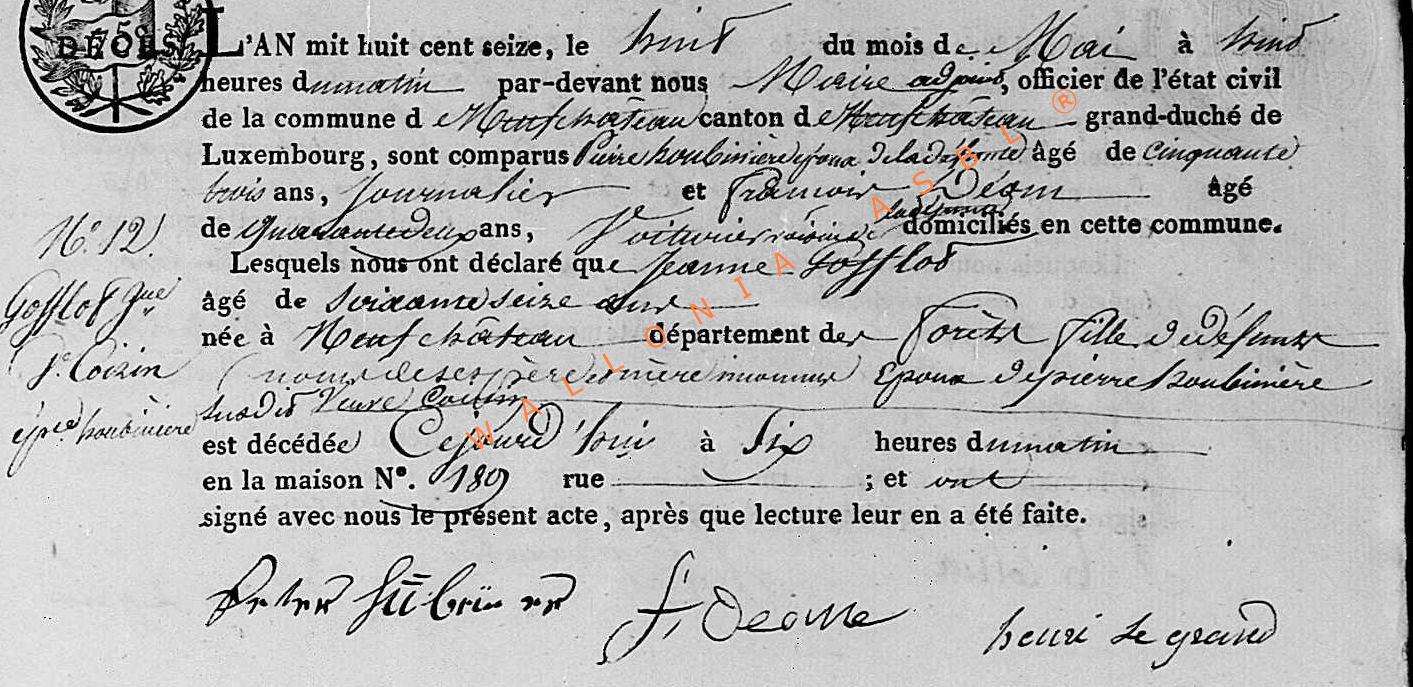 75c
DÉCÈS
L'AN mit huit cent seize, le huit du mois de Mai à huit
heures dumatin par-devant nous Maire adjoint, officier de l'état civil
de la commune d e Neufchâteau canton d e Neufchâteau grand-duché de
Luxembourg, sont comparus Pierre houbinière époux de la défunte âgé de cinquante
trois ans, Journalier et François Déom âgé
de quarante deux ans, Voiturier voisin de la défunte domiciliés en cette commune.
Lesquels nous ont déclaré que Jeanne Gofflot
âgé de soixante seize ans
née à Neufchâteau département des Forêts fille de défunts
(noms de ses père et mère inconnus) Epouse de pierre houbinière
susdit Veuve Coizin
est décédée Cejourd'hui à Six heures dumatin
en la maison N°. 189 rue ; et ont
signé avec nous le présent acte, après que lecture leur en a été faite.
N° 12
Gofflot Jne
Ve Coizin
épse houbinière
Peter Hübüner
f. Deome
henri le grand
WALLONIA ASBL ®